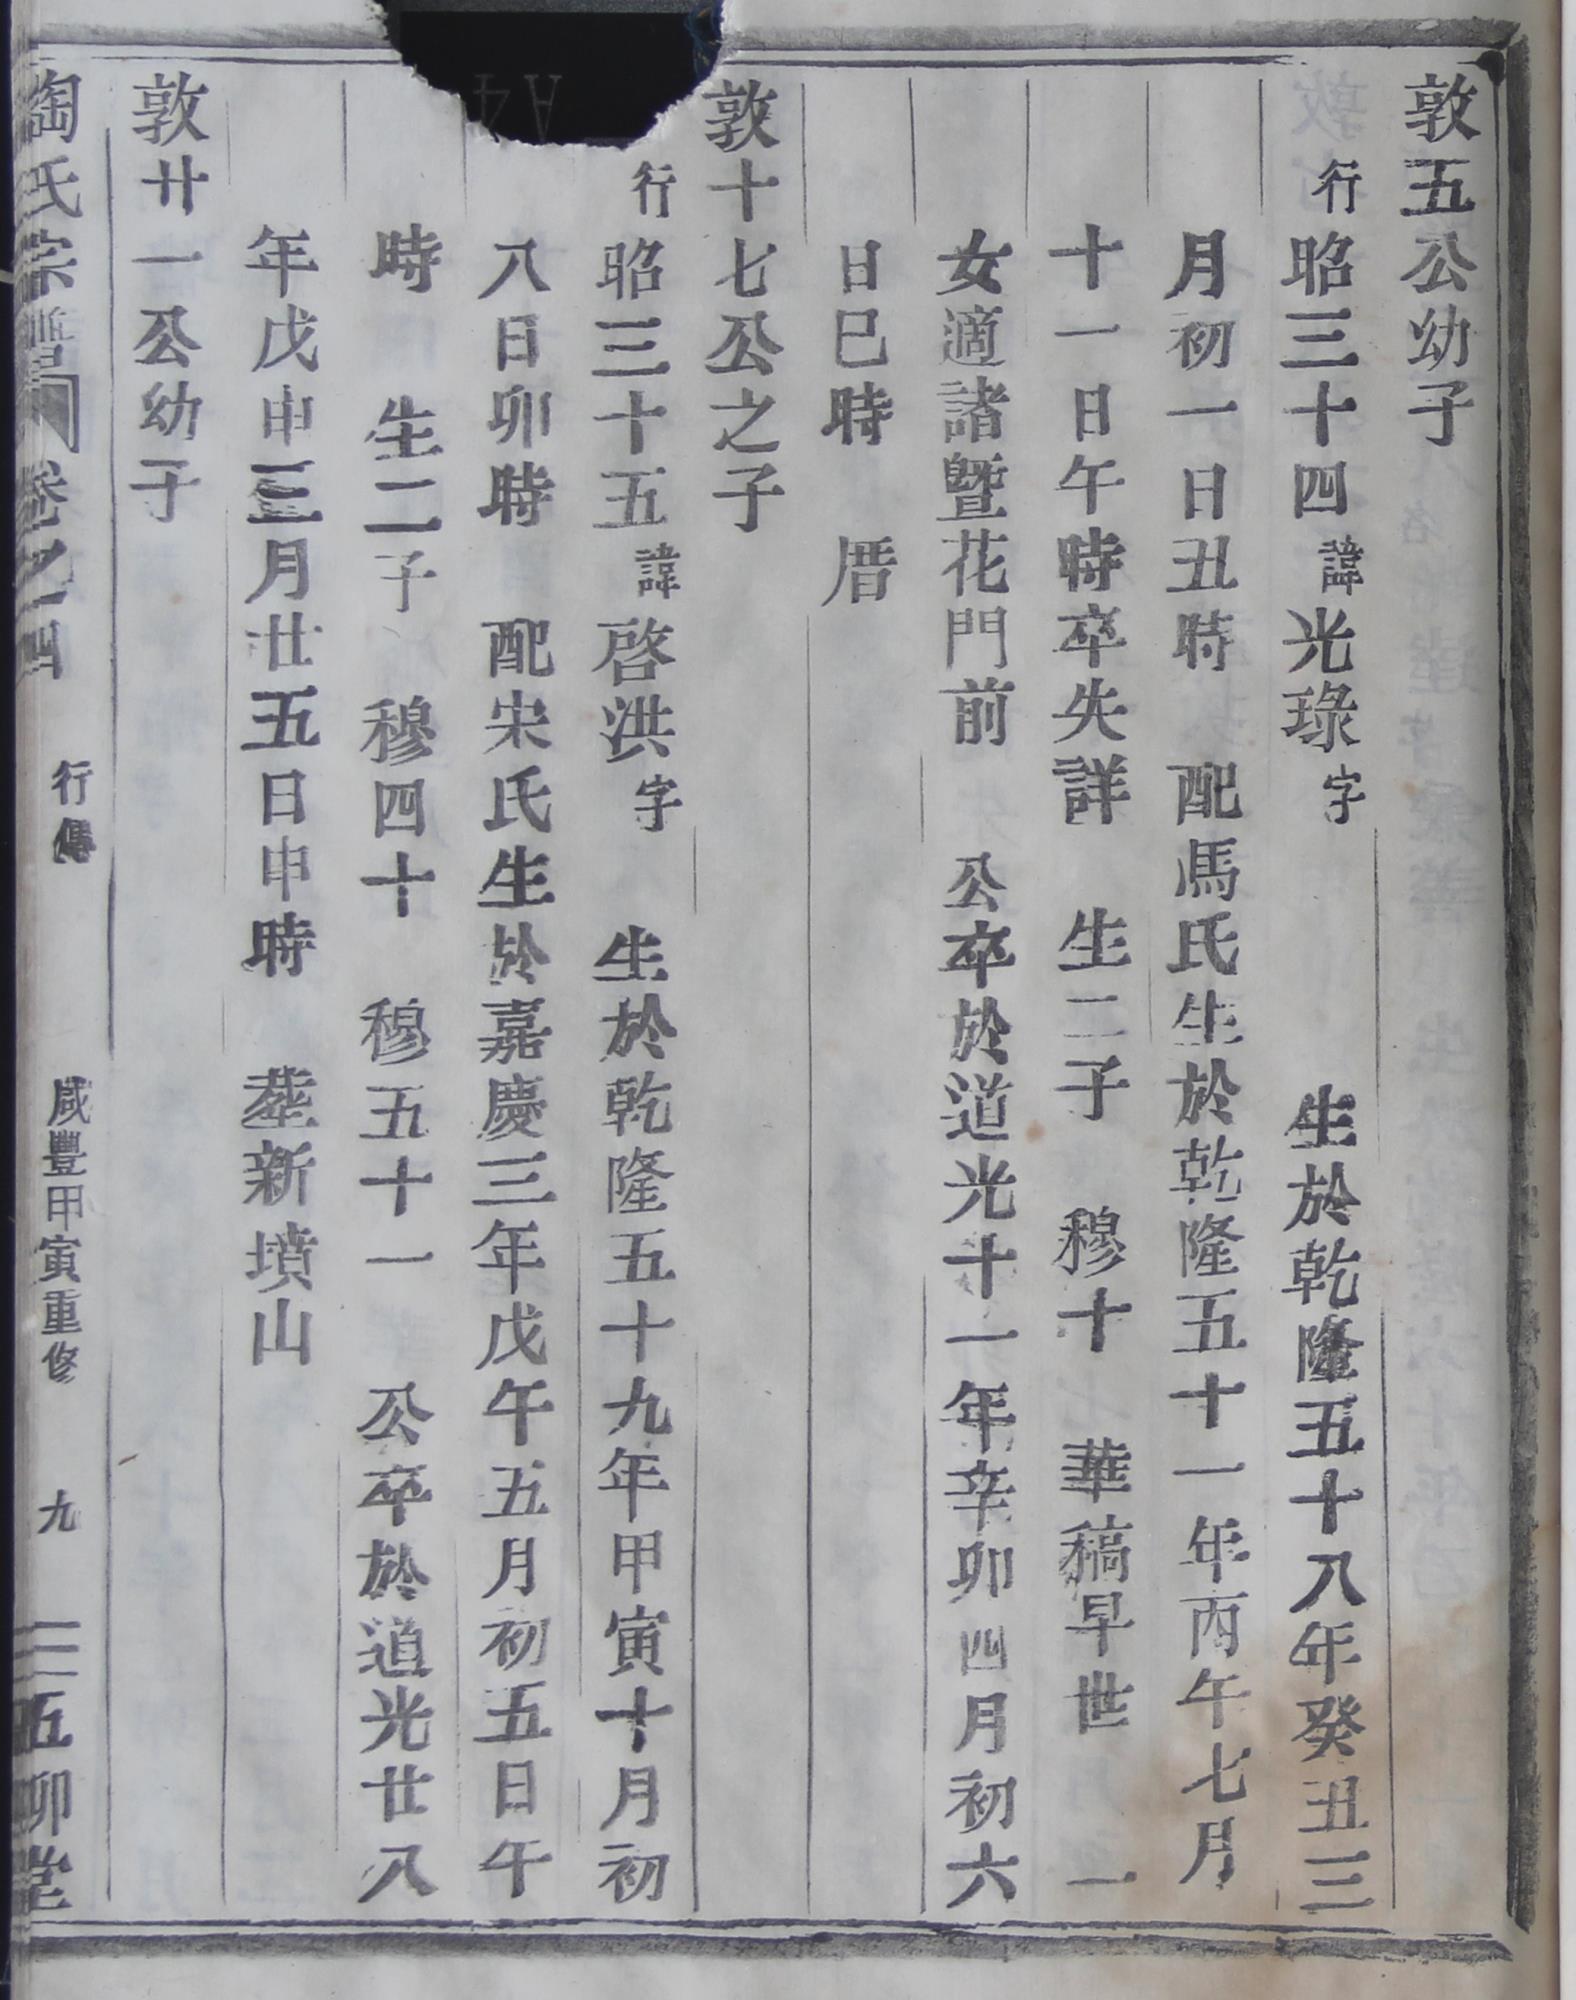 敦五公幼子
行昭三十四諱光琭字　生於乾隆五十八年癸丑三
月初一日丑時　配馬氏生於乾隆五十一年丙午七月
十一日午時卒失詳　生二子　穆十　華稿早世　一
女適諸暨花門前　公卒於道光十一年辛卯四月初六
日巳時　厝
敦十七公之子
行昭三十五諱啓洪字　生於乾隆五十九年甲寅十月初
八日卯時　配宋氏生於嘉慶三年戊午五月初五日午
時　生二子　穆四十　穆五十一　公卒於道光廿八
年戊申三月廿五日申時　塟新墳山
敦廿一公幼子
陶氏宗譜　卷之四　行傳　咸豐甲寅重修　九　五柳堂